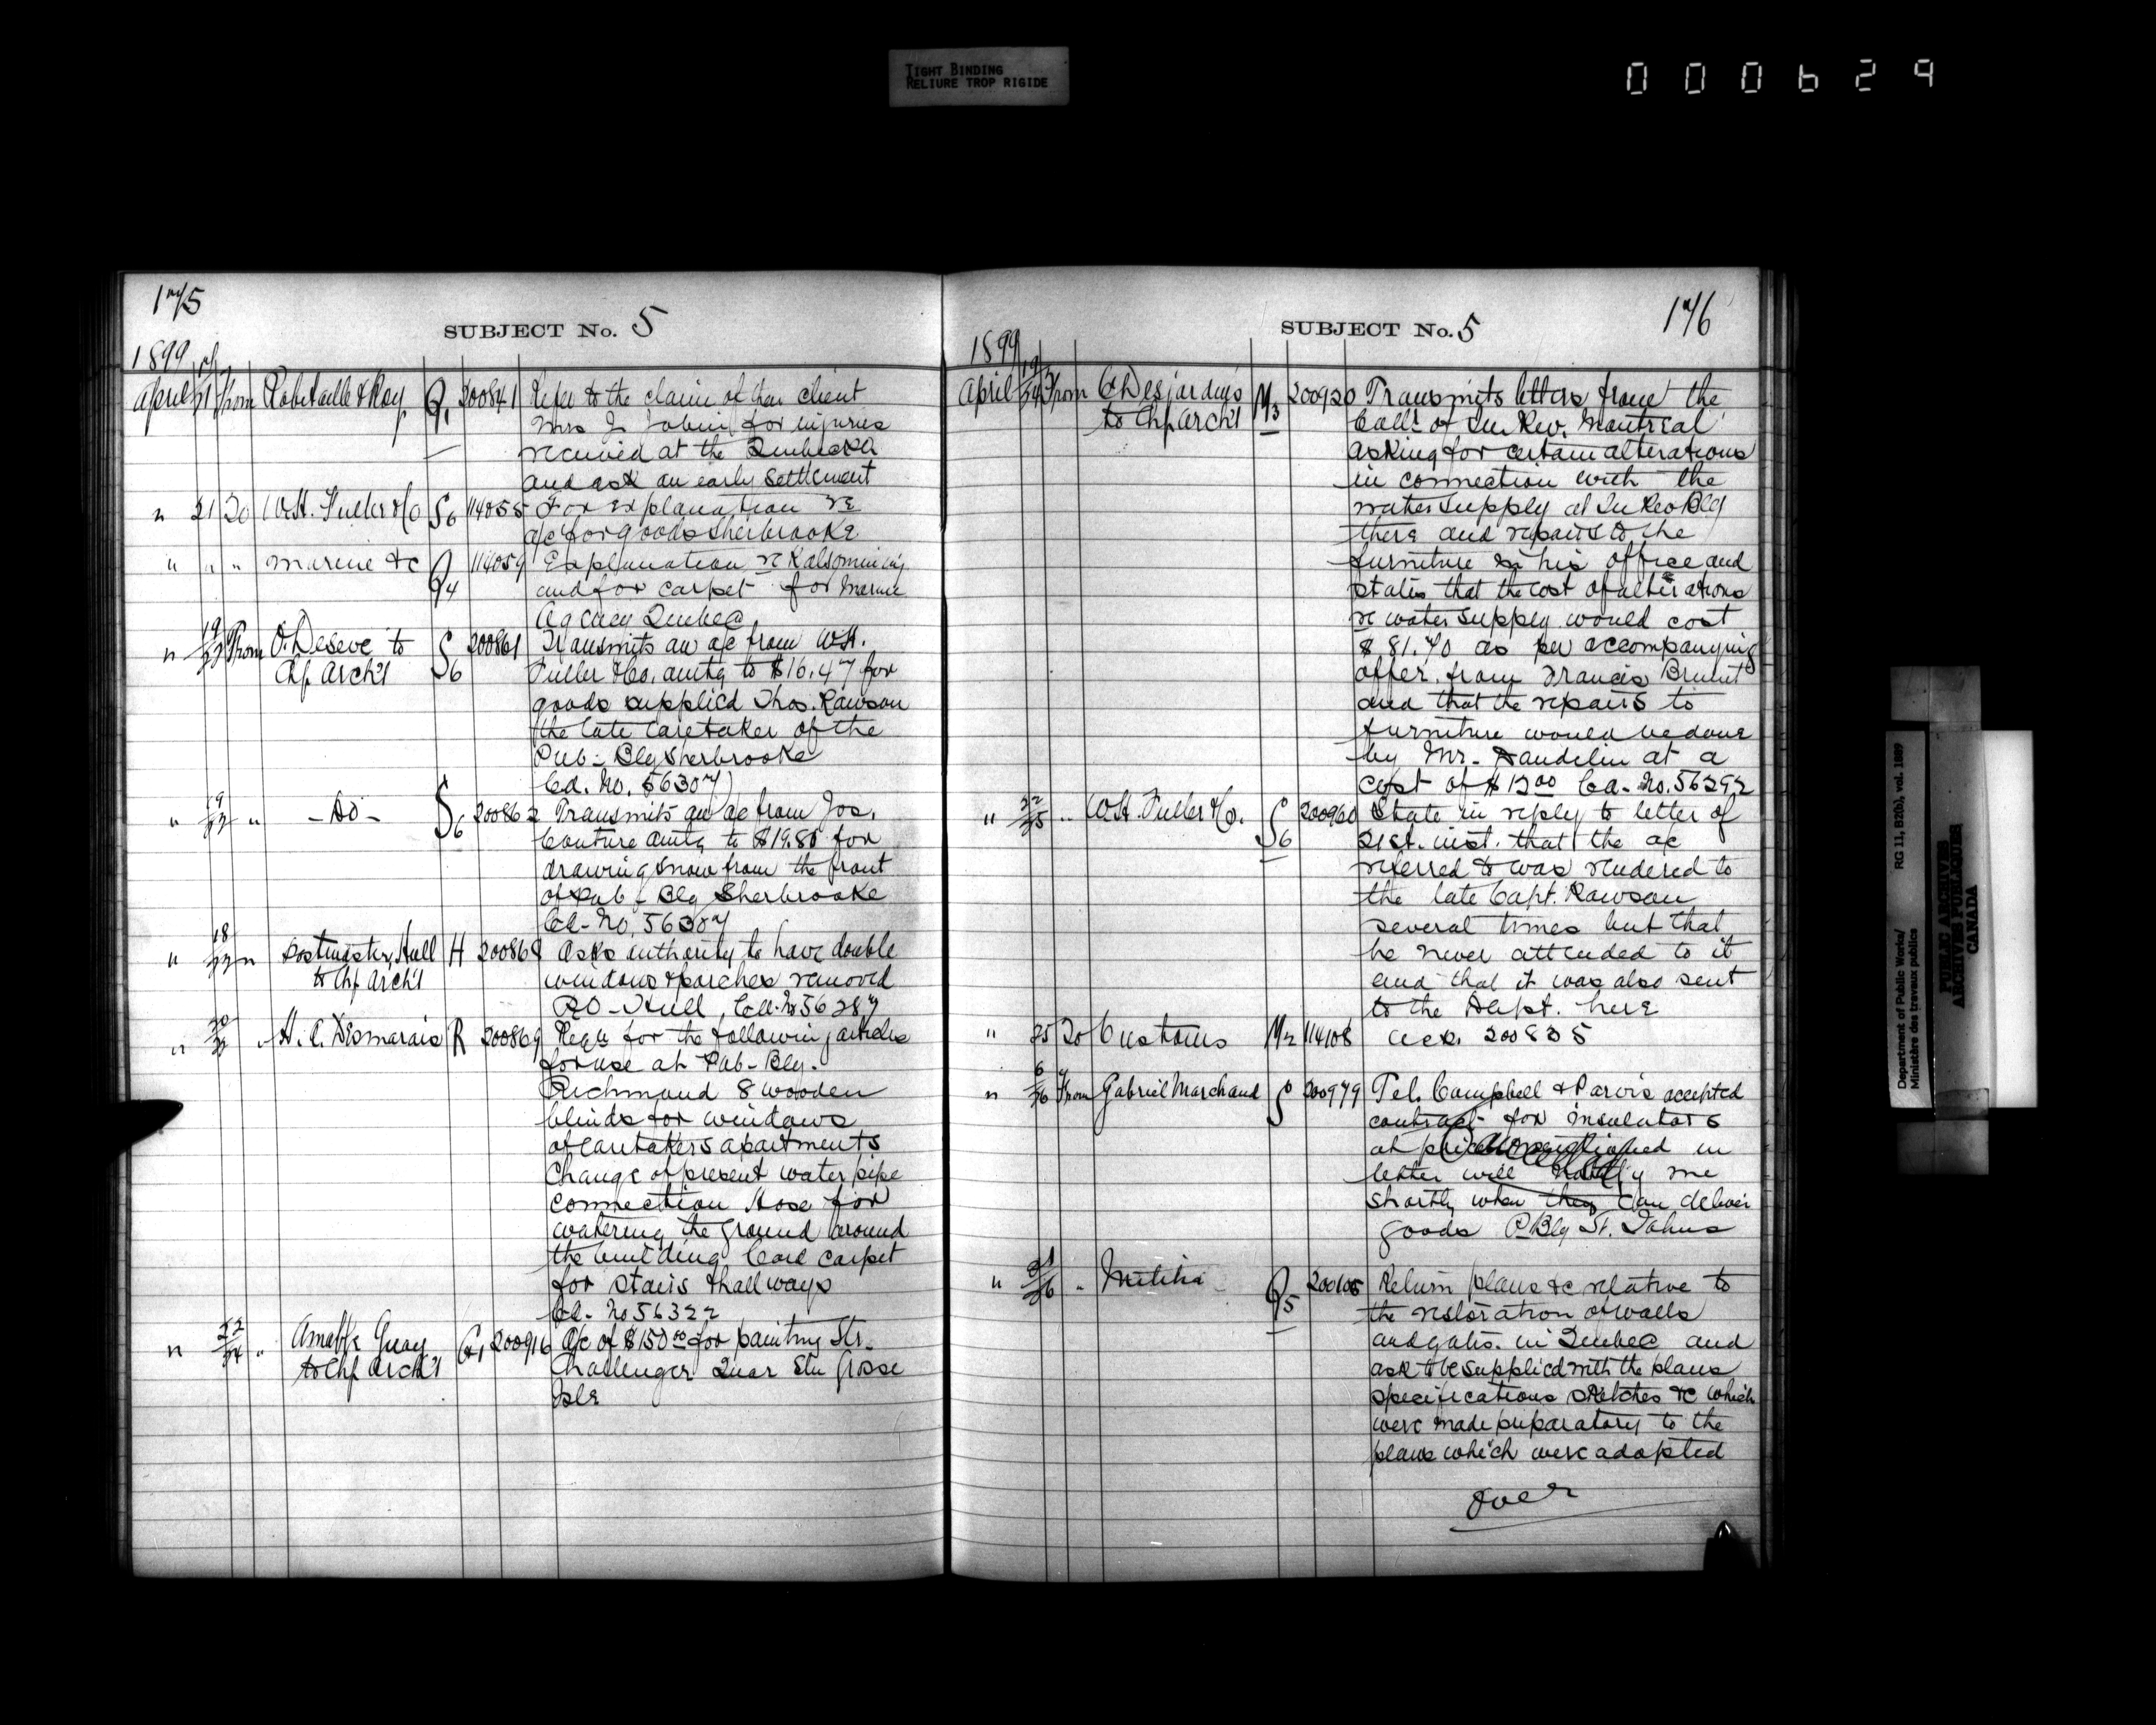 TIGHT BINDING
RELIURE TROP RIGIDE
000629
175
SUBJECT No. 5
1899
April 21 From Robitaille & Roy Q1 200841 Refer to the claim of their client
Mrs J. Tobin for injuries
received at the Quebec
and ask an early settlement
" 21 To W.H. Fuller & Co S6 114055 For explanation re
a/c for goods Sherbrooke
" " " Marine &c Q4 114059 Explanation re Kalsomining
and for carpet for Marine
Agency Quebec
" 19/22 From O. Deseve to S6 200861 Transmits an a/c from W.H.
Chf Arch't Fuller & Co. amtg to $16.47 for
goods supplied Thos. Rawson
the late Caretaker of the
Pub- Blg Sherbrooke
Cd. No. 56307
" 19/22 " -Do- S6 200862 Transmits an a/c from Jos.
Couture amtg to $19.80 for
drawing snow from the front
of Pub- Blg Sherbrooke
Cd- No. 56307
" 18/22 " Postmaster, Hull H 200868 Asks authority to have double
to Chf Arch't windows & porches removed
P.O- Hull, Cd- No 56287
" 20/22 " H. C. Desmarais R 200869 Reqn for the following articles
for use at Pub- Blg-
Richmond 8 wooden
blinds for windows
of caretakers apartments
Change of present water pipe
connection Hose for
watering the ground around
the building Cord carpet
for stairs & hallways
Cd- No 56322
" 22/24 " Guay G1 200916 A/c of $150.00 for painting Str.
to Chf Arch't Challenger Quar Stn Grosse
Isle
176
SUBJECT No. 5
1899
April 19/24 From C. Desjardins M3 200920 Transmits letters from the
to Chf Arch't Collr of In Rev. Montreal
asking for certain alterations
in connection with the
water supply at In Rev Blg
there and repairs to the
furniture in his office and
states that the cost of alterations
re water supply would cost
$81.70 as per accompanying
offer from Francis Brunet
and that the repairs to
furniture would be done
by Mr. Dandelin at a
cost of $12.00 Cd- No. 56292
" 22/25 " W.H. Fuller & Co. S6 200960 State in reply to letter of
21st. inst. that the a/c
referred to was rendered to
the late Capt. Rawson
several times but that
he never attended to it
and that it was also sent
to the Dept. here
" 25 To Customs M2 114108 ack. 200835
" 6/26 From Gabriel Marchand S 200979 Tel. Campbell & Parvis accepted
contract for insulators
at price mentioned in
letter will notify me
shortly when they can deliver
goods P. Blg St. Johns
" 21/26 " Militia Q5 Return plans &c relative to
the restoration of walls
and gates in Quebec and
ask to be supplied with the plans
specifications sketches &c which
were made preparatory to the
plans which were adopted
Over
Department of Public Works/ RG 11, B2(b), vol. 1889
Ministère des travaux publics
PUBLIC ARCHIVES
ARCHIVES PUBLIQUES
CANADA